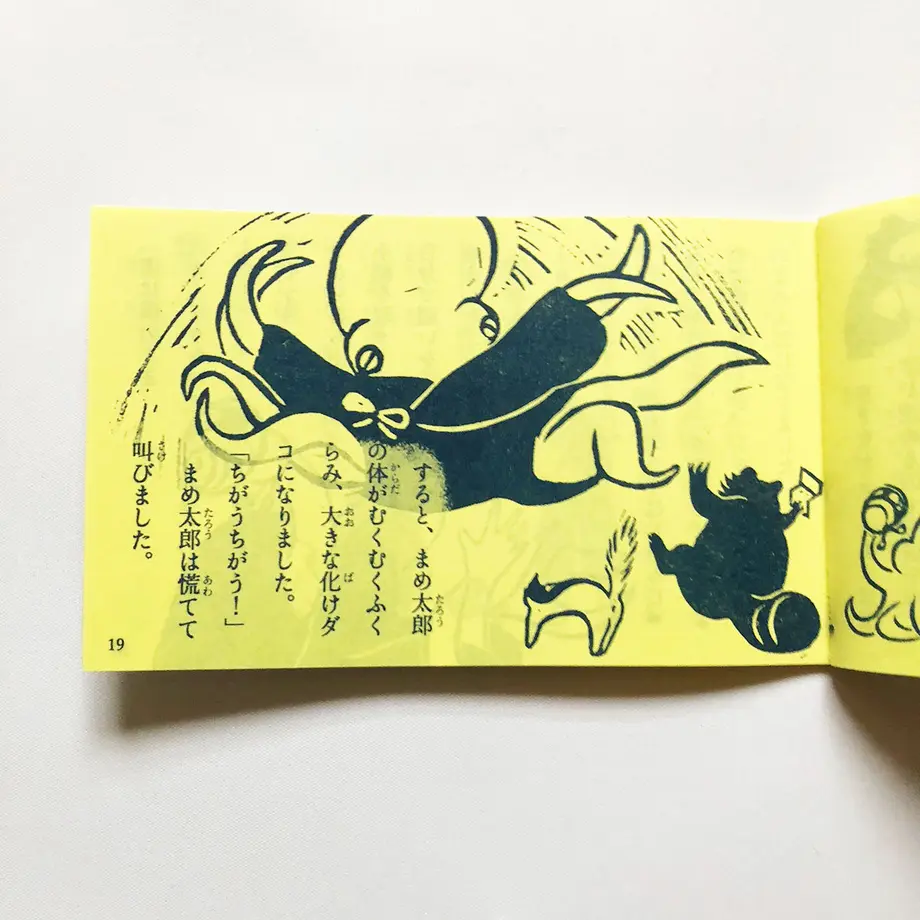 すると、まめ太郎
の体がむくむくふく
らみ、大きな化けダ
コになりました。
「ちがうちがう！」
まめ太郎は慌てて
叫びました。
19